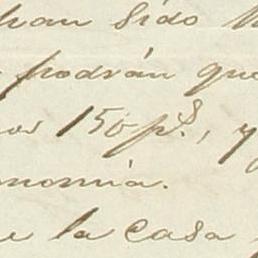 han sido
podrán que
nos 150 p.s, y
nomía.
e la casa